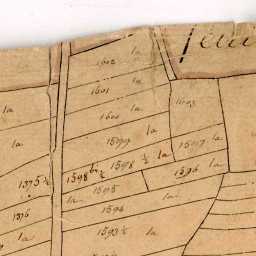 1602 la
1601 la
1603
la 1600 la
1599 la
la 1597 la
1598 ½ la
1596 la
1375 ½
1598 bis ½
1595
la la
1376 1594
1593 ½ la
la